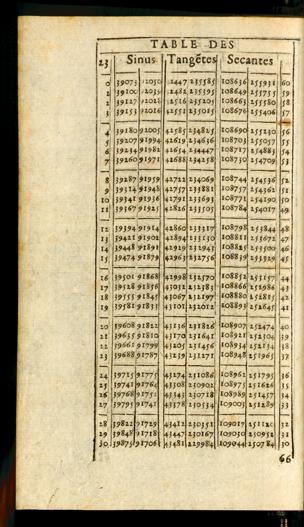 TABLE DES
23 Sinus Tangētes Secantes
0 39073 92050 42447 235585 108636 255931 60
1 39100 92039 42482 235395 108649 255755 59
2 39127 92028 42516 235205 108663 255580 58
3 39153 92016 42551 235015 108676 255406 57
4 39180 92005 42585 234825 108690 255230 56
5 39207 91994 42619 234636 108703 255057 55
6 39234 91982 42654 234447 108717 254883 54
7 39260 91971 42688 234258 108730 254709 53
8 39287 91959 42722 234069 108744 254536 52
9 39314 91948 42757 233881 108757 254362 51
10 39341 91936 42791 233693 108771 254190 50
11 39367 91925 42826 233505 108784 254017 49
12 39394 91914 42860 233317 108798 253844 48
13 39421 91902 42894 233130 108811 253672 47
14 39448 91891 42929 232943 108825 253500 46
15 39474 91879 42963 232756 108839 253329 45
16 39501 91868 42998 232570 108852 253157 44
17 39528 91856 43032 232383 108866 252986 43
18 39555 91845 43067 232197 108880 252815 42
19 39581 91833 43101 232012 108893 252645 41
20 39608 91822 43136 231826 108907 252474 40
21 39635 91810 43170 231641 108921 252304 39
22 39661 91799 43205 231456 108934 252134 38
23 39688 91787 43239 231271 108948 251965 37
24 39715 91775 43274 231086 108962 251795 36
25 39741 91764 43308 230902 108975 251626 35
26 39768 91752 43343 230718 108989 251457 34
27 39795 91741 43378 230534 109003 251289 33
28 39822 91729 43412 230351 109017 251120 32
29 39848 91718 43447 230167 109030 250952 31
30 39875 91706 43481 229984 109044 250784 30
66